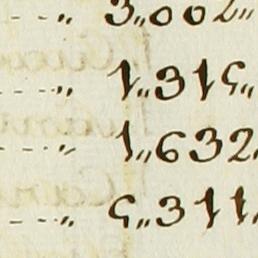 ---„ 3„002„
---„ 1„315„
---„ 1„632.
---„ 5„311.